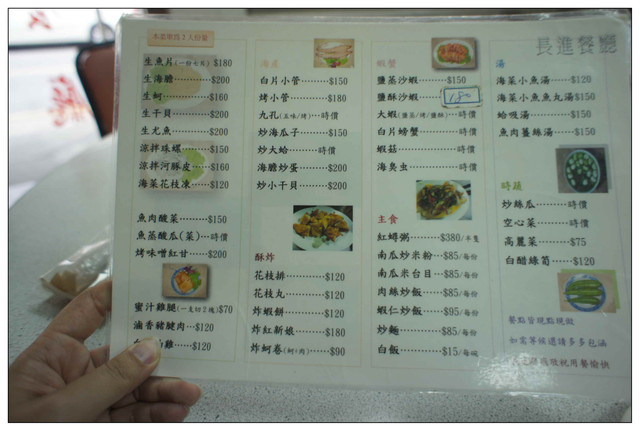 長進餐廳
本套餐為2人份量
生魚片(一份七片) $180
生海膽………$200
生蚵…………$160
生干貝………$200
生尤魚………$200
涼拌珠螺……$150
涼拌河豚皮…$160
海菜花枝凍…$120
魚肉酸菜……$150
魚蒸酸瓜(菜)…時價
烤味噌紅甘……$200
蜜汁雞腿(一支切2塊)$70
滷香豬腱肉…$120
雞…$120
白片小管………$150
烤小管…………$180
九孔(五味/烤)…時價
炒海瓜子………$150
炒大蛤…………時價
海膽炒蛋………$200
炒小干貝………$200
酥炸
花枝排…………$120
花枝丸…………$120
炸蝦餅…………$120
炸紅新娘………$180
炸蚵卷(蚵/肉)…$90
蝦蟹
鹽蒸沙蝦………$150
鹽酥沙蝦 180
大蝦(鹽蒸/烤/鹽酥)…時價
白片螃蟹………時價
蝦菇……………時價
海臭虫…………時價
主食
紅蟳粥………$380/半隻
南瓜炒米粉…$85/每份
南瓜米台目…$85/每份
肉絲炒飯……$85/每份
蝦仁炒飯……$95/每份
炒麵…………$85/每份
白飯…………$15/每碗
湯
海菜小魚湯……$120
海菜小魚魚丸湯$150
蛤蜊湯…………$150
魚肉薑絲湯……$150
時蔬
炒絲瓜………時價
空心菜………時價
高麗菜………$75
白醋綠筍……$120
餐點皆現點現做
如需等候還請多多包涵
祝用餐愉快